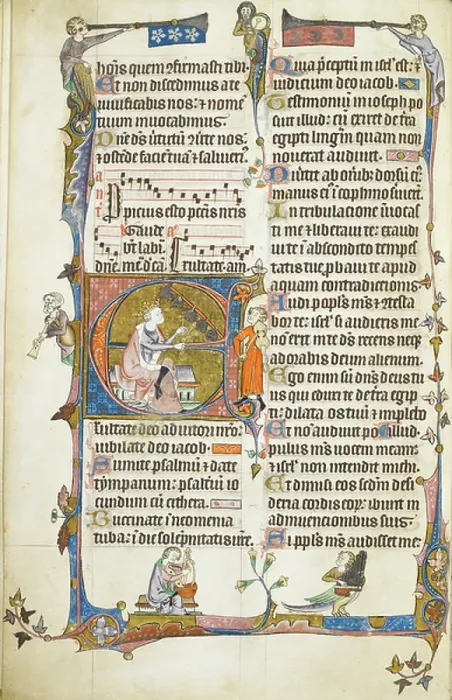 hoīs quem ɔfirmasti tibi.
Et non discedimus a te
uiuificabis nos: ⁊ nomē
tuum inuocabimus.
Dñe ds̄ uirtutū ɔuerte nos:
⁊ ostēde faciē tuā ⁊ salui erimꝰ.
an̄
Ppicius esto pccīs nr̄is
dn̄e.
Exultate
Exultate deo adiutori nrō:
iubilate deo iacob.
Sumite psalmū ⁊ date
tympanum: psaltiū io
cundum cū cythera.
Buccinate ī neomenia
tuba: ī die solēpnitatis ur̄e.
Quia p̄ceptū in isrl̄ est: ⁊
iudicium deo iacob.
Testimoniū in ioseph po
suit illud: cū exiret de tr̄a
egipti linguā quam non
nouerat audiuit.
Diuertit ab onīb; dorsū eī:
manus eī ī cophino seruierūt.
In tribulacione īuocas
ti me ⁊ liberaui te: exaudi
ui te ī abscondito tempes
tatis: p̄baui te apud
aquam contradictionis.
Audi popls̄ ms̄ ⁊ ɔtesta
bor te: isrl̄ si audieris me
nō erit in te ds̄ recens neqꝫ
adorabis deum alienum.
Ego enim sū dn̄s deus tu
us qui eduxi te de tr̄a egip
ti: dilata os tuū ⁊ implebo
Et nō audiuit po illud.
pulus ms̄ uocem meam:
⁊ isrl̄ non intendit michi.
Et dimisi eos scd̄m desi
deria cordis eoꝝ: ibunt in
adinuencionibus suis.
Si ppls̄ ms̄ audisset me: